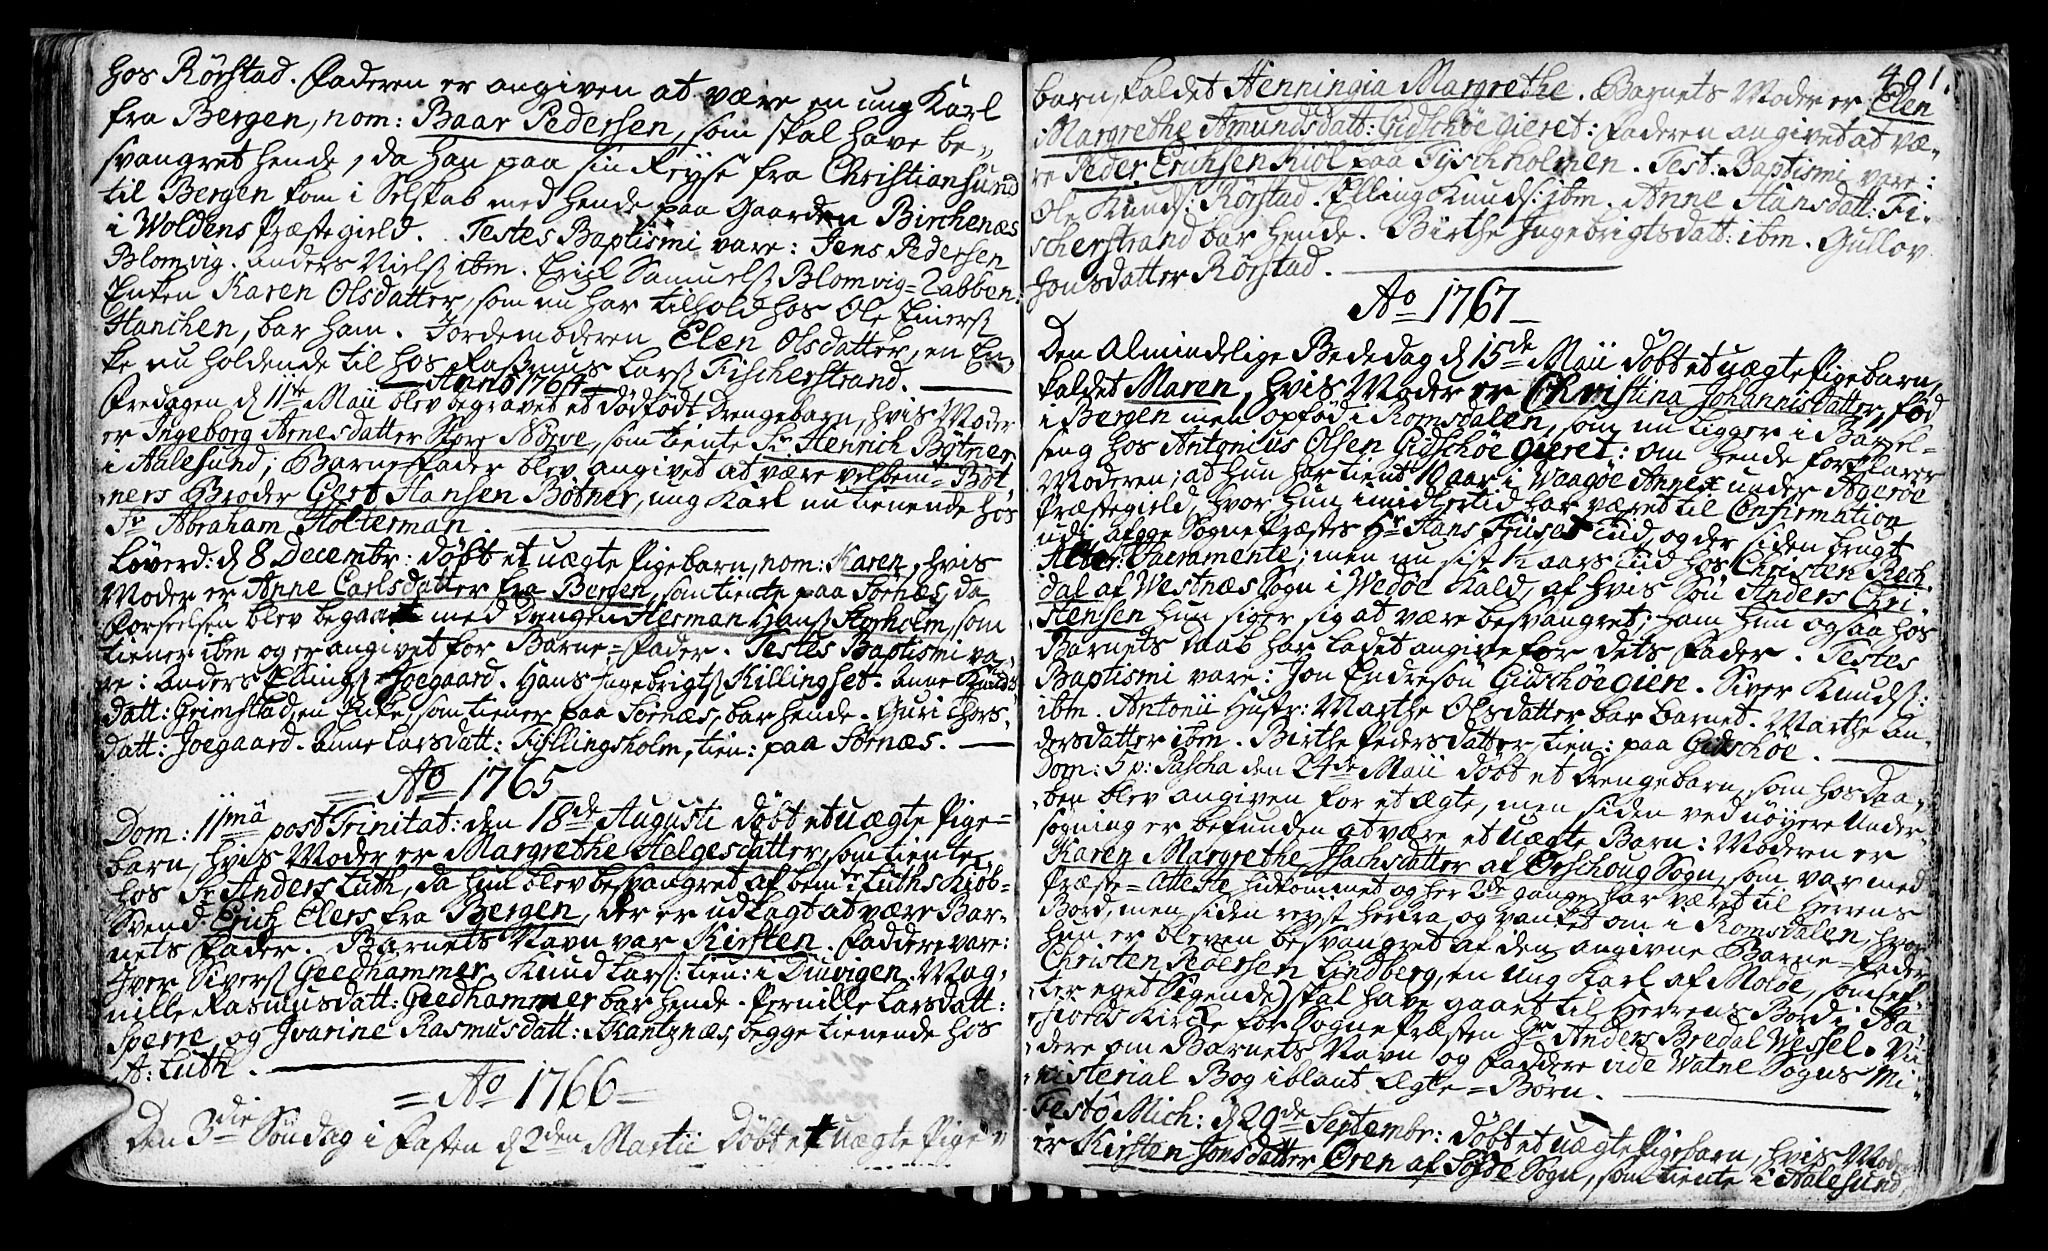 hos Rørstad. Faderen er angiven at være en ung Karl
fra Bergen, nom: Baar Pedersen, som skal have be-
svangret hende, da han paa sin Reyse fra Christiansund
til Bergen kom i Selskab med hende paa Gaarden Birchenæs
i Woldens Præstegield. Testes Baptismi vare: Jens Pedersen
Blomvig. Anders Nielsß ibm. Erich Samuelsß Blomvig=Tabben.
Enken Karen Olsdatter, som nu har tilhold hos Ole Einersß
Hanchen, bar ham. Jordemoderen Elen Olsdatter, en En-
ke nu holdende til hos Rasmus Larsß Fischerstrand.
Anno 1764
Fredagen d 11te Maii blev begravet et dødfødt Drengebarn, hvis Moder
er Ingeborg Arnesdatter Nørve, som tiente Sr Henrich Bøtner
i Aalesund; Barne=Fader blev angivet at være velbem= Bøt-
ners Broder Gert Hansen Bøtner, ung Karl nu tienende hos
Sr Abraham Holterman.
Løverd: d 8 Decembr: døbt et uægte Pigebarn, nom: Karen, hvis
Moder er Anne Carlsdatter fra Bergen, som tiente paa Sørnæs, da
Forseelsen blev begaaet med Drengen Herman Hansß Storholm, som
tiener ibm og er angivet for Barne=Fader. Testes Baptismi va-
re: Anders Ellingsß Joegaard. Hans Ingebrigtsß Killingset. Anne Knuds
datt: Grimstad, en Enke, som tiener paa Sørnæs, bar hende. Guri Thors-
datt: Joegaard. Anne Larsdatt: Fyllingsholm, tien: paa Sørnæs.
= Ao 1765
Dom: 11mâ post Trinitat: den 18de Augusti døbt et uægte Pige=
barn, hvis Moder er Margrethe Helgesdatter, som tiente
hos Sr Anders Luth, da hun blev besvangret af bemte Luths Kiøb-
Svend: Erich Elers fra Bergen, der er udlagt at være Bar-
nets Fader. Barnets Navn var Kirsten. Faddere vare:
Iver Siversß Geedhammer. Knud Larsß: tien: i Duevigen. Mag-
nille Rasmusdatt: Geedhammer bar hende. Pernille Larsdatt:
Sperre, og Ivarine Rasmusdatt: Krantznæs, begge tienende hos
A: Luth.
= Ao 1766 =
Den 3die Søndag i Fasten d 2den Martii døbt et uægte Pige
401.
barn, kaldet Henningia Margrethe. Barnets Moder er Elen
Margrethe Amundsdatt: Gidschøe gieret: Faderen angivet at væ-
re Peder Erichsen Kiøl paa Fischholmen. Test: Baptismi vare:
Ole Knudsß: Rørstad. Elling Knudsß: ibm. Anne Hansdatt: Fi-
scherstrand bar hende. Birthe Ingebrigtsdatt: ibm. Gullov
Jonsdatter Rørstad.
Ao 1767
Den Almindelige Bededag d 15de Maii døbt et uægte Pigebarn,
kaldet Maren, hvis Moder er Christina Johannisdatter, fød
i Bergen men opfød i Romsdalen, som nu ligger i Barsel-
seng hos Antonius Olsen Gidschøe gieret: om hende forklarer
Moderen; at hun har tient 10 aar i Waagøe Annex under Agerøe
Præstegield, hvor hun imidlertid har været til Confirmation
udi afgge SognePræstes Hr Hans Friises Tid, og der siden brugt
Alter: Sacramente; men nu sist ½ aars Tid hos Christen Rech-
dal af Westnæs Sogn i Wedøe Kald, af hvis Søn Anders Chri-
stensen hun siger sig at være besvangret; ham hun ogsaa hos
Barnets Daab har ladet angive for dets Fader. Testes
Baptismi vare: Jon Endresøn Gidschøegiere. Siver Knudsß:
ibm. Antonii Hustr: Marthe Olsdatter bar barnet. Marthe An-
dersdatter ibm. Birthe Pedersdatter, tien: paa Gidschøe.
Dom: 5 p: Pascha den 24de Maii døbt et Drengebarn, som hos Daa-
ben blev angiven for et ægte, men siden ved nøyere Under-
søgning er befunden at være et uægte Barn: Moderen er
Karen Margrethe Isachsdatter af Ørschoug Sogn, som var med
Præste=Atteste hidkommet og her 2de gange har været til Herrens
Bord, men siden reyst herfra og vanket om i Romsdalen, hvor
hun er bleven besvangret af den angivne Barne=Fader
Christen Pedersen Lindberg, en Ung Karl af Molde, som (ef-
ter eget Sigende) skal have gaaet til Herrens Bord i Ha-
fiords Kirke for SognePræsten Hr Anders Bredal Wessel. Vi-
dere om Barnets Navn og Faddere vide Watne Sogns Mi-
nisterial Bog iblant Ægte=Børn.
Festô Mich: d 29de Septembr: døbt et uægte Pigebarn, hvis Moder
er Kirsten Jonsdatter Øren af Søfde Sogn, som tiente i Aalesund,